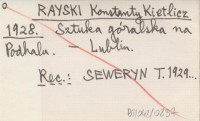 RAYSKI Konstanty Kietlicz
1928. Sztuka góralska na
Podhalu. – Lublin.
Rec.: SEWERYN T. 1929...